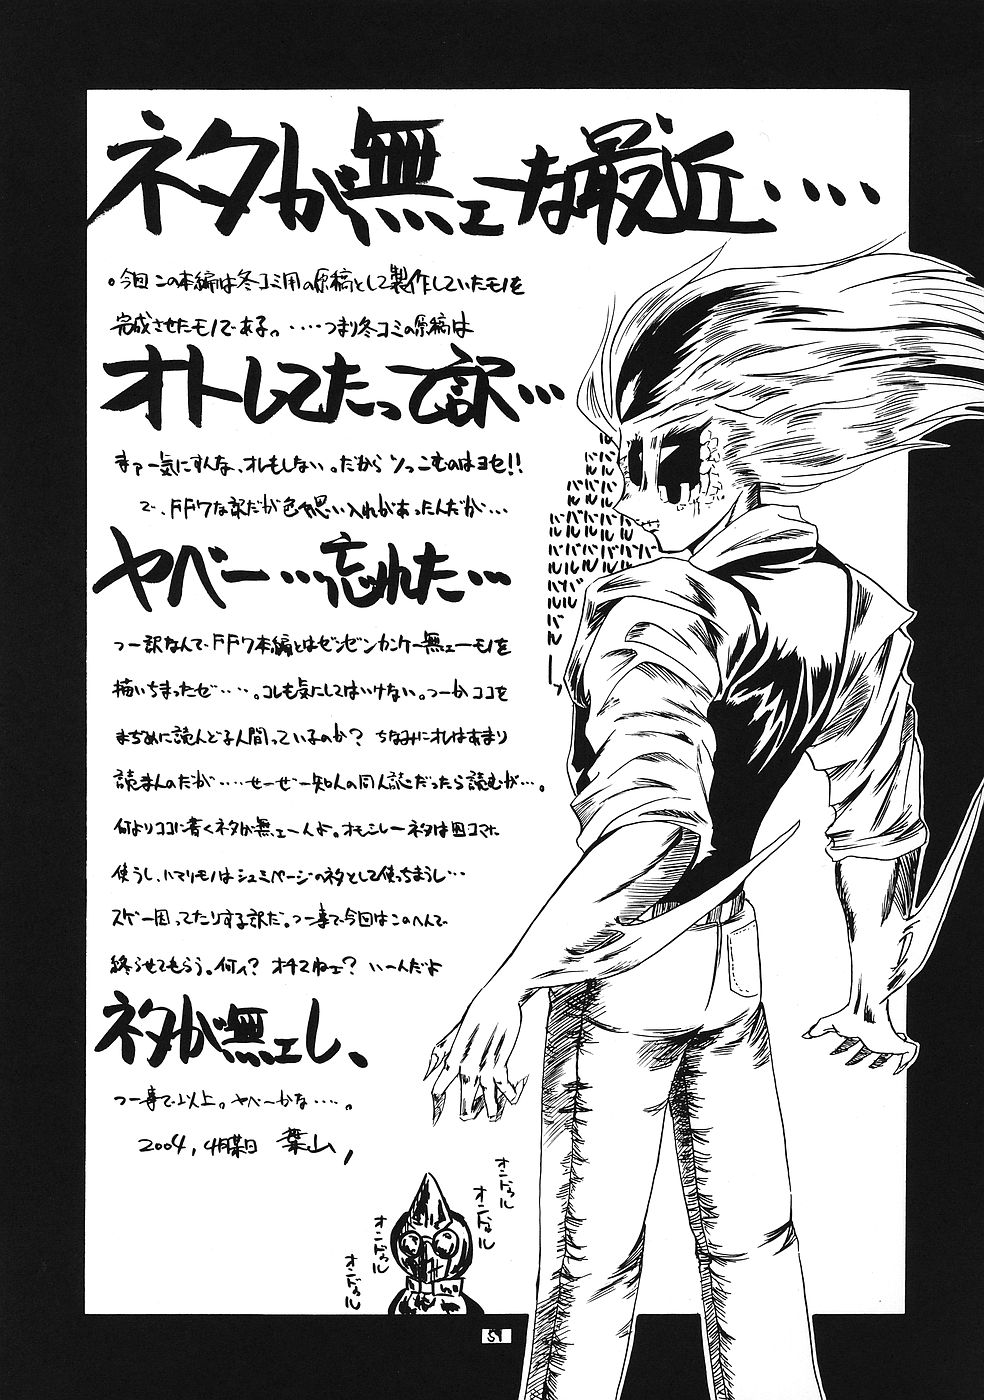 ネタが無ェーな最近・・・・
。今回この本編は冬コミ用の原稿として製作していたモノを
完成させたモノである。・・・・つまり冬コミの原稿は
オトしてたって訳・・・
まァ一気にすんな、オレもしない。だからツっこむのはヨセ!!
で、FF7な訳だが色々思い入れがあったんだが・・・
ヤベー・・・忘れた・・・
つー訳なんで、FF7本編とはゼンゼンカンケー無ェーモノを
描いちまったぜ・・・・。コレも気にしてはいけない。つーかココを
まぢめに読んどる人間っているのか? ちなみにオレはあまり
読まんのだが・・・・せーぜー知人の同人誌だったら読むが・・・。
何よりココに書くネタが無ェーんよ。オモシレーネタは四コマに
使うし、ハマリモノはシュミページのネタとして使っちまうし・・・
スゲー困ってたりする訳だ。つー事で今回はこのへんで
終らせてもらう。何ィ? オチてねェ? いーんだよ
ネタが無ェし、
つー事で以上。ヤベーかな・・・・。
2004,4月某日 葉山,
バル
バルバル
バルバルバル
バルバルバルバル
バルバルバル
バルバル
バルーッ
オンドゥル
オンドゥル
オンドゥル
オンドゥル
51